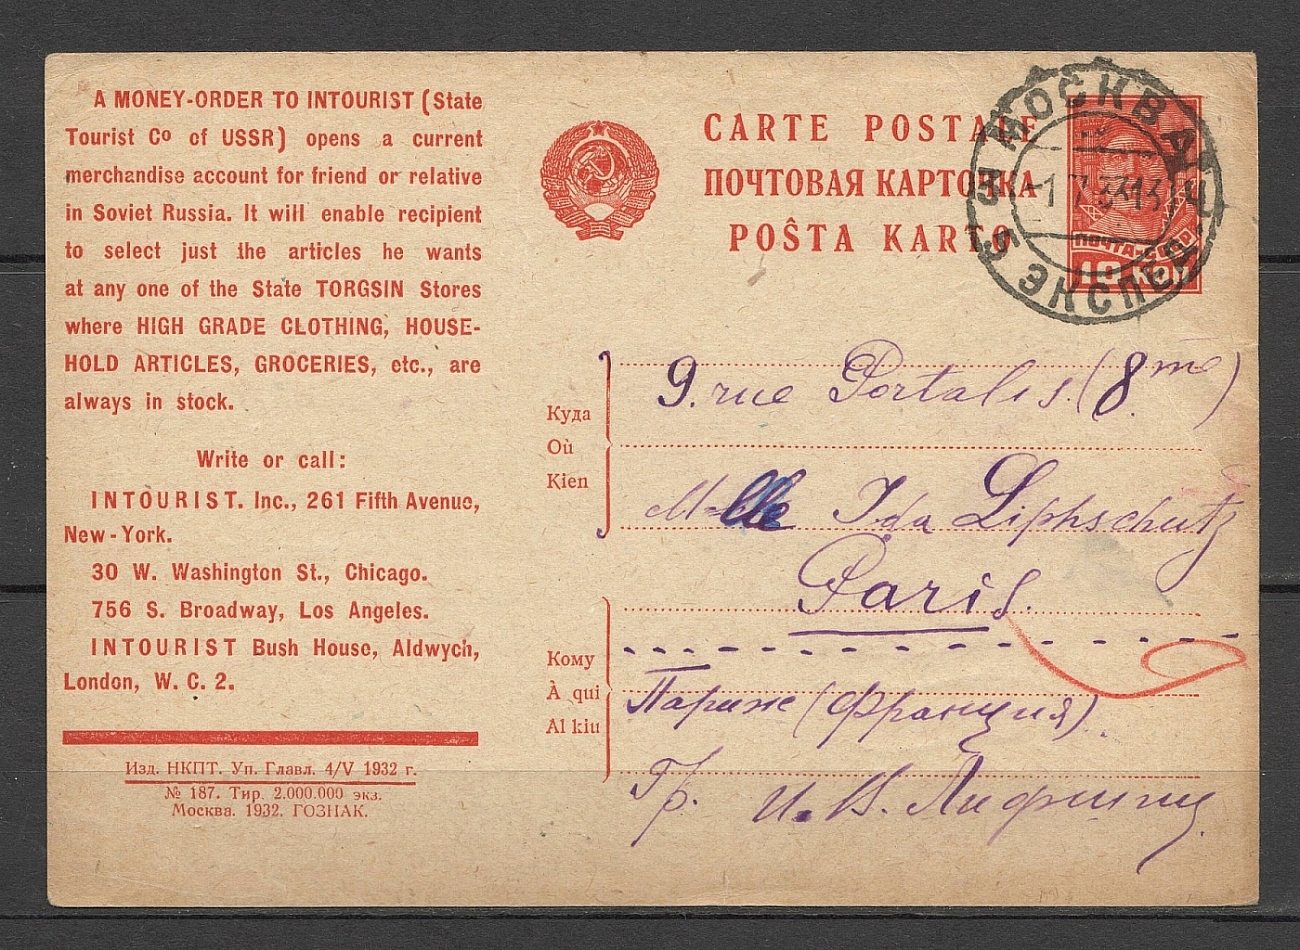 A MONEY-ORDER TO INTOURIST (State
Tourist Co of USSR) opens a current
merchandise account for friend or relative
in Soviet Russia. It will enable recipient
to select just the articles he wants
at any one of the State TORGSIN Stores
where HIGH GRADE CLOTHING, HOUSE-
HOLD ARTICLES, GROCERIES, etc., are
always in stock.
Write or call:
INTOURIST. Inc., 261 Fifth Avenue,
New-York.
30 W. Washington St., Chicago.
756 S. Broadway, Los Angeles.
INTOURIST Bush House, Aldwych,
London, W. C. 2.
Изд. НКПТ. Уп. Главл. 4/V 1932 г.
№ 187. Тир. 2.000.000 экз.
Москва. 1932. ГОЗНАК.
CARTE POSTALE
ПОЧТОВАЯ КАРТОЧКА
POŜTA KARTO
МОСКВА
ЭКСПЕД
ПОЧТА-СССР
10 КОП
Куда
Où
Kien
9. rue Portalis. (8me)
Mlle Ida Liphschutz
Paris.
Кому
À qui
Al kiu
Париж (Франция).
Гр. И. В. Лифшиц